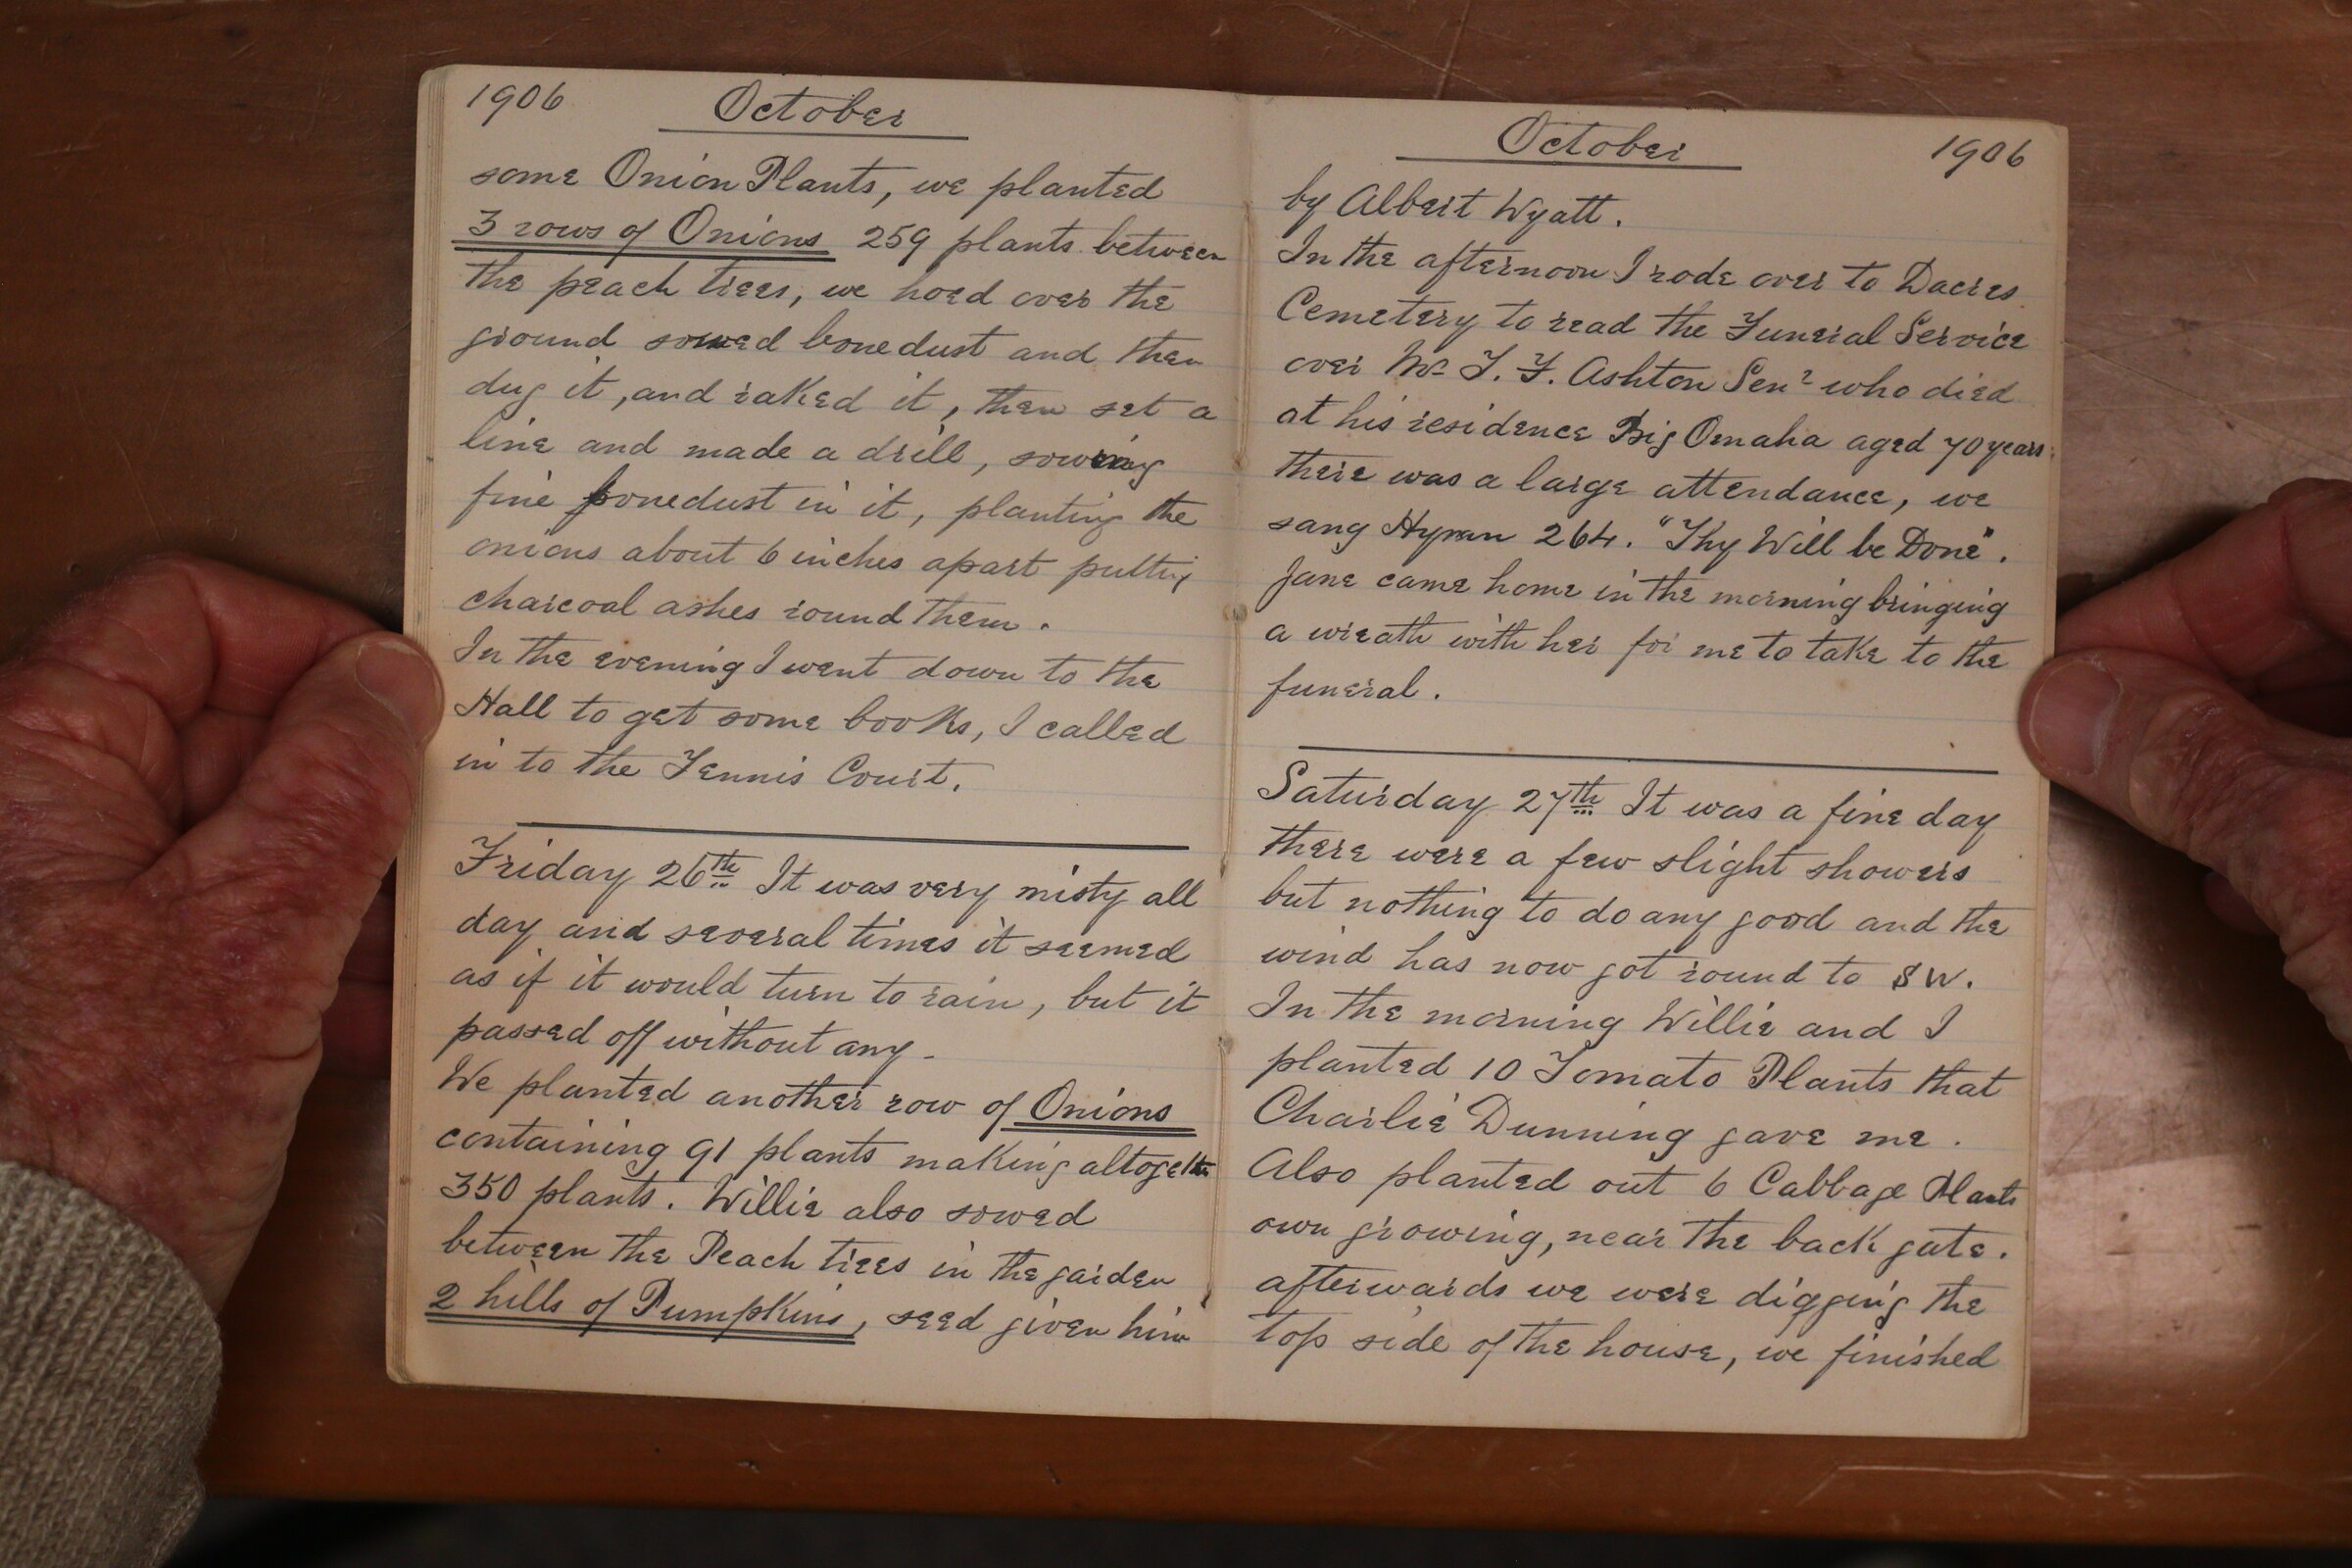 1906 October
some Onion Plants, we planted
3 rows of Onions 259 plants between
the peach trees, we hoed over the
ground sowed bonedust and then
dug it, and raked it, then set a
line and made a drill, sowing
fine bonedust in it, planting the
onions about 6 inches apart putting
charcoal ashes round them.
In the evening I went down to the
Hall to get some books, I called
in to the Tennis Court.
Friday 26th It was very misty all
day and several times it seemed
as if it would turn to rain, but it
passed off without any -
We planted another row of Onions
containing 91 plants making altogether
350 plants. Willie also sowed
between the Peach trees in the garden
2 hills of Pumpkins, seed given him
October 1906
by Albert Wyatt.
In the afternoon I rode over to Dacres
Cemetery to read the Funeral Service
over Mr T. F. Ashton Senr who died
at his residence Big Omaha aged 70 years.
there was a large attendance, we
sang Hymn 264. "Thy Will be Done".
Jane came home in the morning bringing
a wreath with her for me to take to the
funeral.
Saturday 27th It was a fine day
there were a few slight showers
but nothing to do any good and the
wind has now got round to SW.
In the morning Willie and I
planted 10 Tomato Plants that
Charlie Dunning gave me.
Also planted out 6 Cabbage Plants
own growing, near the back gate.
afterwards we were digging the
top side of the house, we finished